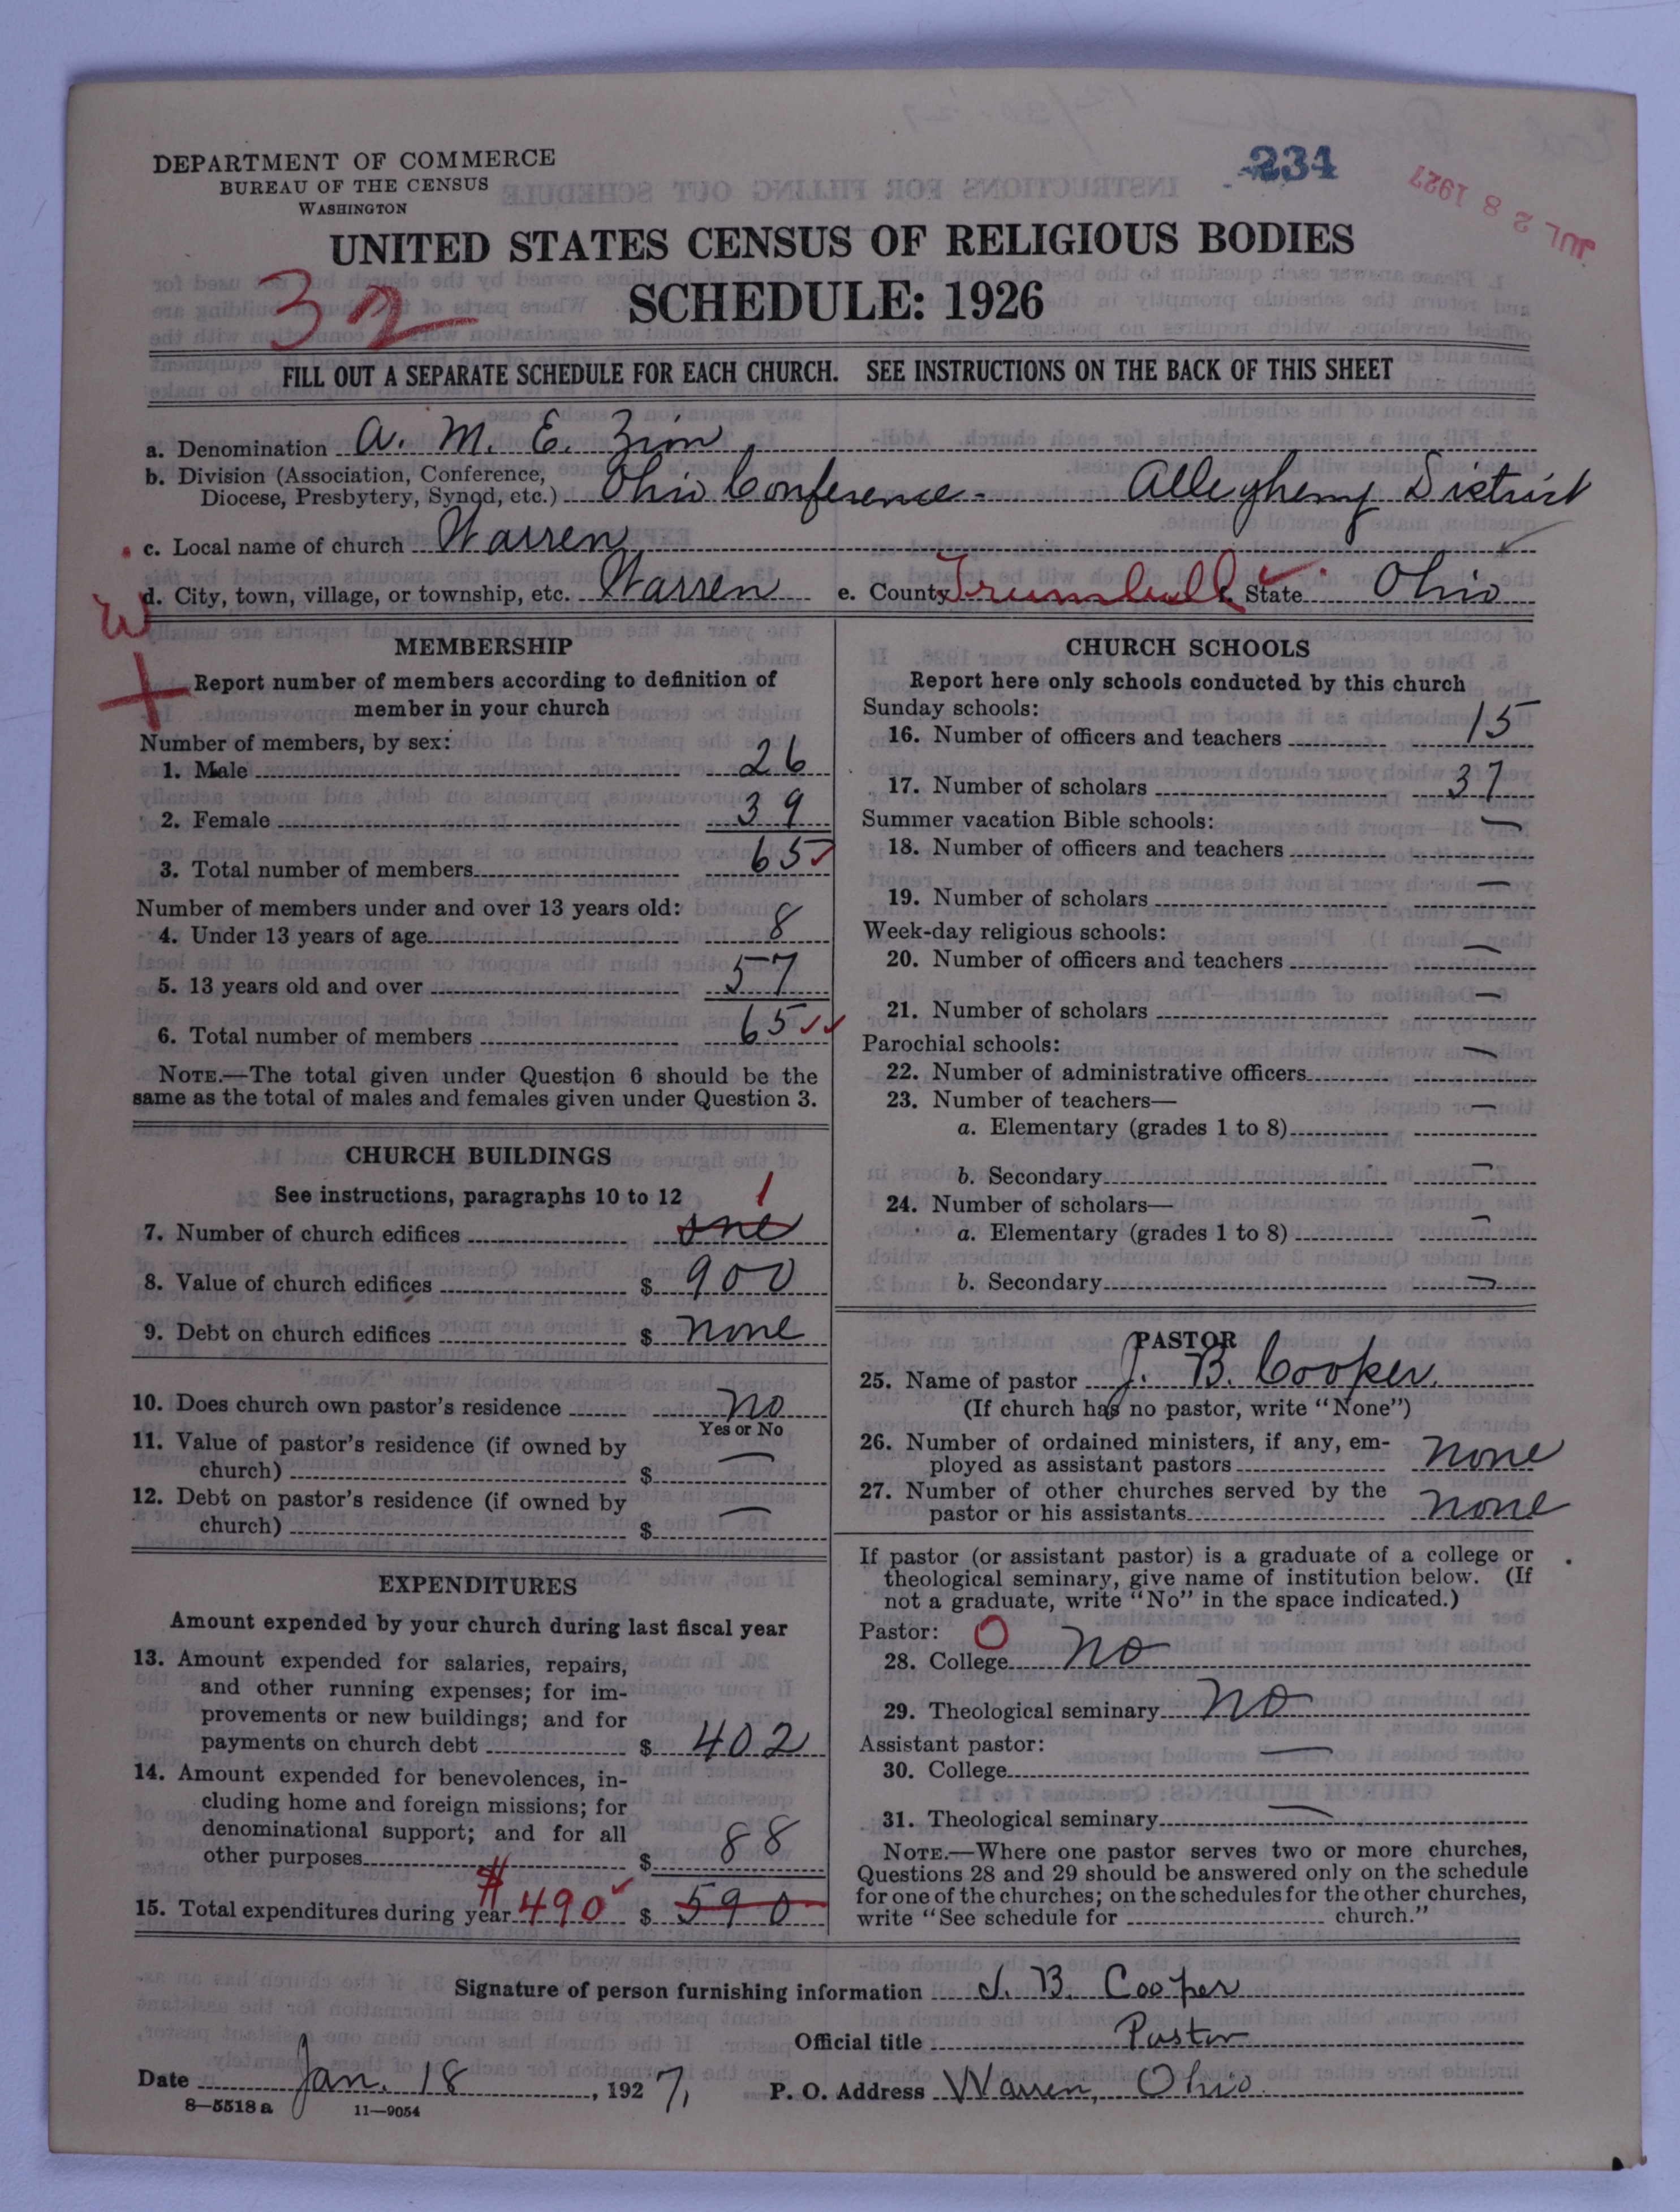 DEPARTMENT OF COMMERCE
BUREAU OF THE CENSUS
WASHINGTON
234
JUL 28 1927
UNITED STATES CENSUS OF RELIGIOUS BODIES
SCHEDULE: 1926
32
FILL OUT A SEPARATE SCHEDULE FOR EACH CHURCH. SEE INSTRUCTIONS ON THE BACK OF THIS SHEET
a. Denomination A. M. E. Zion
b. Division (Association, Conference,
Diocese, Presbytery, Synod, etc.) Ohio Conference - Allegheny District
c. Local name of church Warren
d. City, town, village, or township, etc. Warren e. County Trumbull f. State Ohio
W
MEMBERSHIP
Report number of members according to definition of
member in your church
Number of members, by sex:
1. Male 26
2. Female 39
3. Total number of members 65
Number of members under and over 13 years old:
4. Under 13 years of age 8
5. 13 years old and over 57
6. Total number of members 65
NOTE.—The total given under Question 6 should be the
same as the total of males and females given under Question 3.
CHURCH BUILDINGS
See instructions, paragraphs 10 to 12
1
7. Number of church edifices one
8. Value of church edifices $ 900
9. Debt on church edifices $ none
10. Does church own pastor's residence No
Yes or No
11. Value of pastor's residence (if owned by
church) $ —
12. Debt on pastor's residence (if owned by
church) $ —
EXPENDITURES
Amount expended by your church during last fiscal year
13. Amount expended for salaries, repairs,
and other running expenses; for im-
provements or new buildings; and for
payments on church debt $ 402
14. Amount expended for benevolences, in-
cluding home and foreign missions; for
denominational support; and for all
other purposes $ 88
15. Total expenditures during year $490 $ 590
CHURCH SCHOOLS
Report here only schools conducted by this church
Sunday schools:
16. Number of officers and teachers 15
17. Number of scholars 37
Summer vacation Bible schools:
18. Number of officers and teachers —
19. Number of scholars —
Week-day religious schools:
20. Number of officers and teachers —
21. Number of scholars —
Parochial schools:
22. Number of administrative officers —
23. Number of teachers—
a. Elementary (grades 1 to 8) —
b. Secondary —
24. Number of scholars—
a. Elementary (grades 1 to 8) —
b. Secondary —
PASTOR
25. Name of pastor J. B. Cooper.
(If church has no pastor, write "None")
26. Number of ordained ministers, if any, em-
ployed as assistant pastors none
27. Number of other churches served by the
pastor or his assistants none
If pastor (or assistant pastor) is a graduate of a college or
theological seminary, give name of institution below. (If
not a graduate, write "No" in the space indicated.)
Pastor: O
28. College No
29. Theological seminary No
Assistant pastor:
30. College —
31. Theological seminary —
NOTE.—Where one pastor serves two or more churches,
Questions 28 and 29 should be answered only on the schedule
for one of the churches; on the schedules for the other churches,
write "See schedule for church."
Signature of person furnishing information J. B. Cooper
Official title Pastor
Date Jan. 18, 1927, P. O. Address Warren, Ohio.
8—5518 a 11—9054